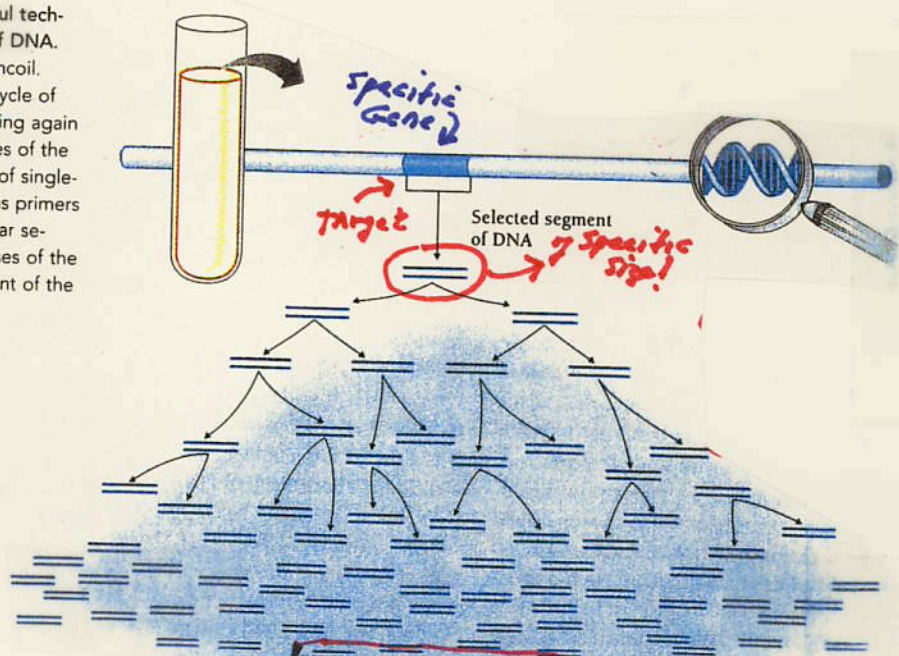 ul tech-
f DNA.
ncoil.
ycle of
ing again
es of the
of single-
s primers
ar se-
ses of the
nt of the
Specific
Gene
Target
Selected segment
of DNA
Specific
Size!